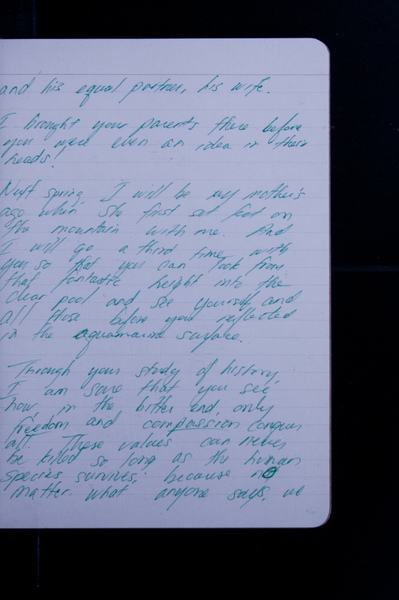 and his equal partner, his wife.
I brought your parents there before
you were even an idea in their
heads.
Next spring, I will be my mother's
age when she first set foot on
the mountain with me. And
I will go a third time with
you so that you can look from
that fantastic height into the
clear pool and see yourself and
all those before you reflected
in the aquamarine surface.
Through your study of history,
I am sure that you see
how, in the bitter end, only
freedom and compassion conquer
all. These values can never
be killed so long as the human
species survives; because no
matter what anyone says, we